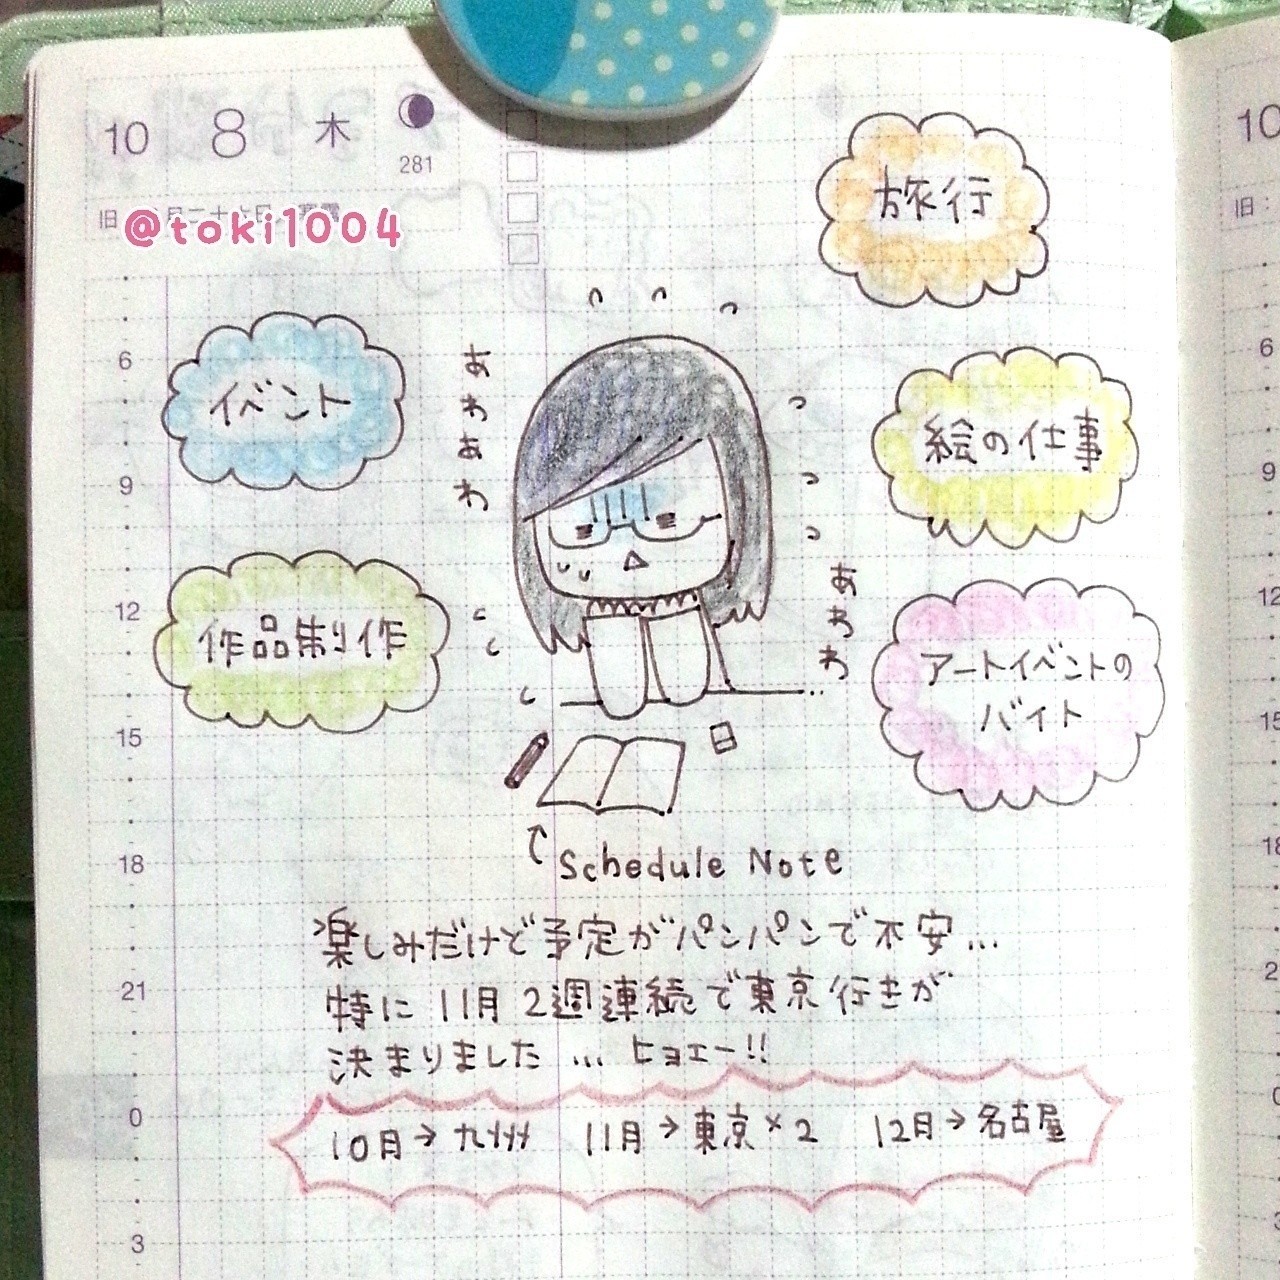 10 8 木
281
@toki1004
旅行
イベント
あわあわ
絵の仕事
作品制作
あわわ
アートイベントの
バイト
6
9
12
15
18
21
0
3
Schedule Note
楽しみだけど予定がパンパンで不安…
特に11月2週連続で東京行きが
決まりました…ヒョエー!!
10月→九州 11月→東京×2 12月→名古屋
10
旧:
6
9
12
15
18